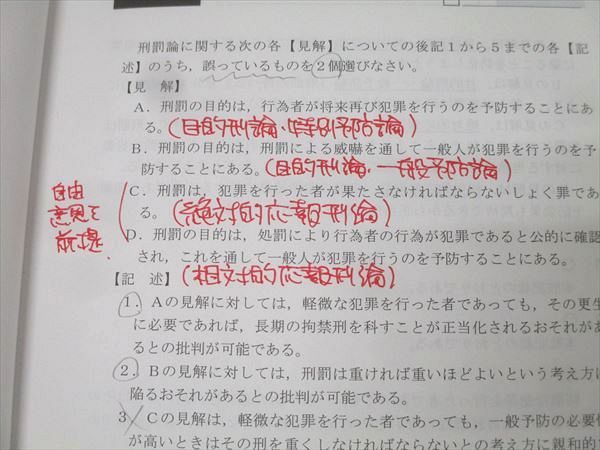 刑罰論に関する次の各【見解】についての後記1から5までの各【記
述】のうち，誤っているものを2個選びなさい。
【見　解】
A．刑罰の目的は，行為者が将来再び犯罪を行うのを予防することにあ
る。(目的刑論・特別予防論)
B．刑罰の目的は，刑罰による威嚇を通して一般人が犯罪を行うのを予
防することにある。(目的刑論・一般予防論)
自由
意思を
前提
C．刑罰は，犯罪を行った者が果たさなければならないしょく罪であ
る。(絶対的応報刑論)
D．刑罰の目的は，処罰により行為者の行為が犯罪であると公的に確認
され，これを通して一般人が犯罪を行うのを予防することにある。
【記　述】(相対的応報刑論)
1．Aの見解に対しては，軽微な犯罪を行った者であっても，その更生
に必要であれば，長期の拘禁刑を科すことが正当化されるおそれがあ
るとの批判が可能である。
2．Bの見解に対しては，刑罰は重ければ重いほどよいという考え方に
陥るおそれがあるとの批判が可能である。
3．Cの見解は，軽微な犯罪を行った者であっても，一般予防の必要
が高いときはその刑を重くしなければならないとの考え方に親和的